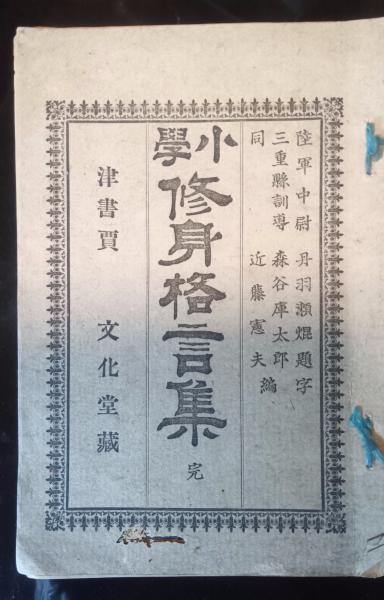 陸軍中尉 丹羽瀬焜題字
三重縣訓導 森谷庫太郎
同 近藤憲夫編
小學
修身格言集 完
津書賈 文化堂藏